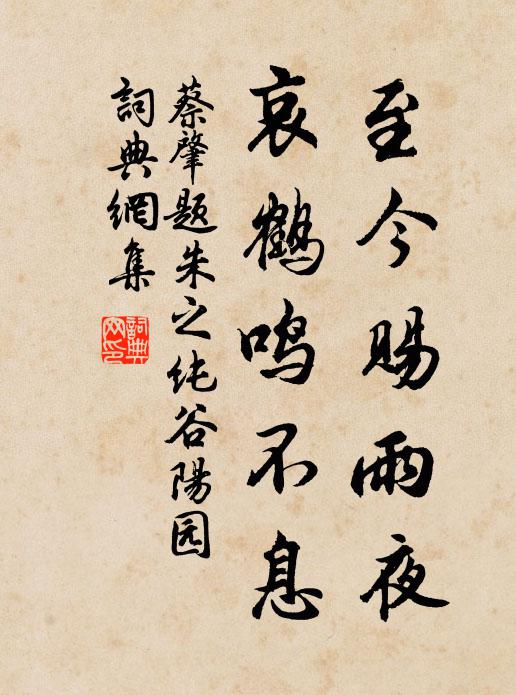 至今賜雨夜
哀鶴鳴不息
蔡肇題朱之純谷陽园
詞典網集
詞典
网印